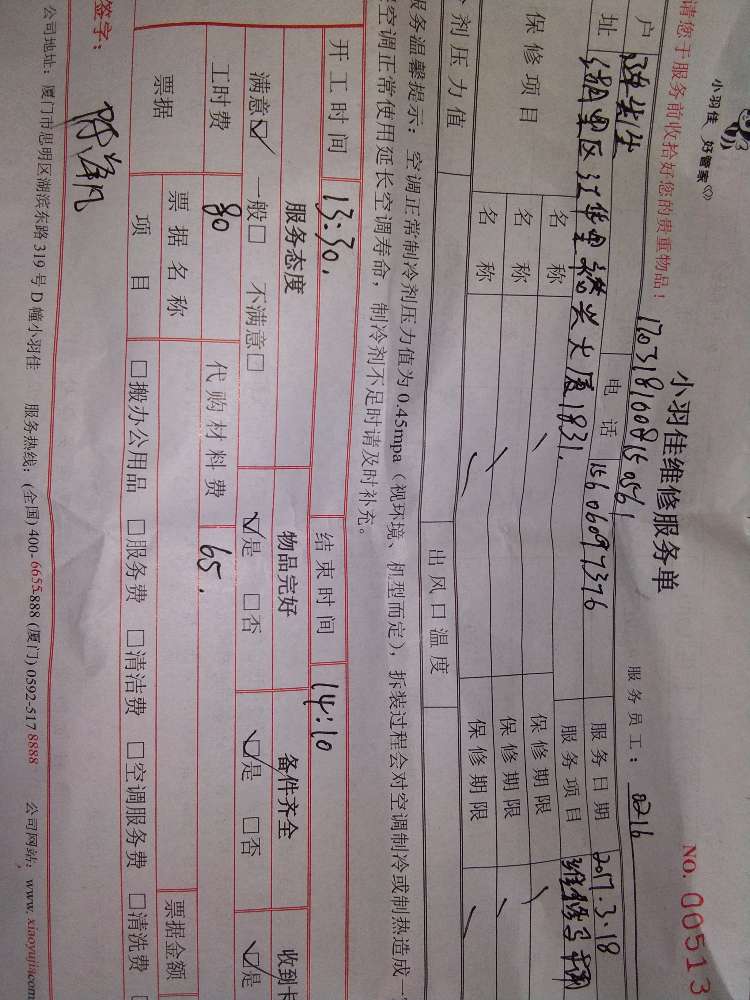 小羽佳 好管家
小羽佳维修服务单
NO. 00513
请您于服务前收拾好您的贵重物品！
1703181008150561
服务员工：0216
户
电话 15606097376
服务日期 2017.3.18
址
湖里区江华里裕兴大厦1831.
服务项目
保修项目
名称
保修期限
名称
保修期限
名称
保修期限
冷剂压力值
出风口温度
服务温馨提示：空调正常制冷剂压力值为0.45mpa（视环境、机型而定），拆装过程会对空调制冷或制热造成一
空调正常使用延长空调寿命，制冷剂不足时请及时补充。
开工时间 13:30.
结束时间 14:10
服务态度
物品完好
备件齐全
收到卡
满意☑ 一般□ 不满意□
☑是 □否
☑是 □否
☑是
工时费 80
代购材料费 65.
票据
票据名称
票据金额
项目
□搬办公用品 □服务费 □清洁费 □空调服务费 □清洗费
签字：
公司地址：厦门市思明区湖滨东路319号D幢小羽佳 服务热线：(全国)400-6655-888 (厦门)0592-517 8888 公司网站：www.xiaoyujia.com